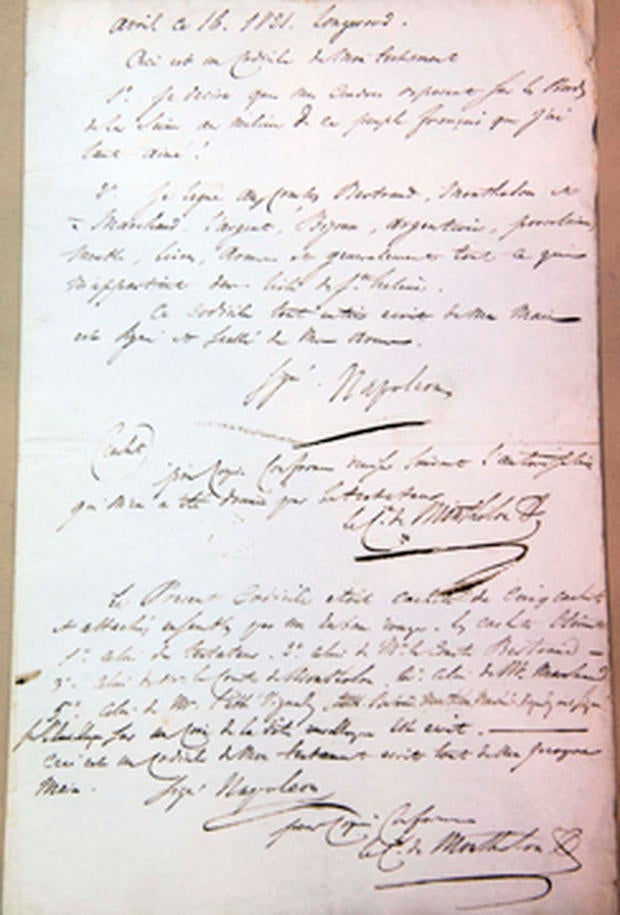 avril ce 16. 1821. Longwood.
Ceci est un Codicile de Mon testament
1º. Je desire que mes Cendres reposent sur les Bords
de la Seine au milieu de ce peuple français que j'ai
tant aimé!
2º. Je legue aux Comtes Bertrand, Montholon et
à Marchand l'argent, Bijoux, argenterie, porcelaine,
Meubles, livres, Armes et generalement tout ce qui
m'appartient dans l'isle de Ste helene.
Ce Codicile tout entier ecrit de Ma Main
est signé et scellé de Mes armes.
Signé. Napoleon
Cachet
pour Copie Conforme suivant l'autorisation
qui m'en a été donné par le testateur
le Cte. de Montholon
Le Present Codicile etait cacheté de Cinq cachets
et attachés ensemble par un ruban rouge. les cachets
1º. celui du testateur. 2º celui de Mr. le Comte Bertrand
3º. celui de Mr. le Comte de Montholon 4º. celui de Mr. Marchand
5º. celui de Mr. l'abbé Vignaly
sur un Coin de la dite enveloppe est ecrit.
Ceci est un Codicile de Mon testament ecrit tout de Ma propre
Main. Signé Napoleon
pour Copie Conforme
le Cte. de Montholon